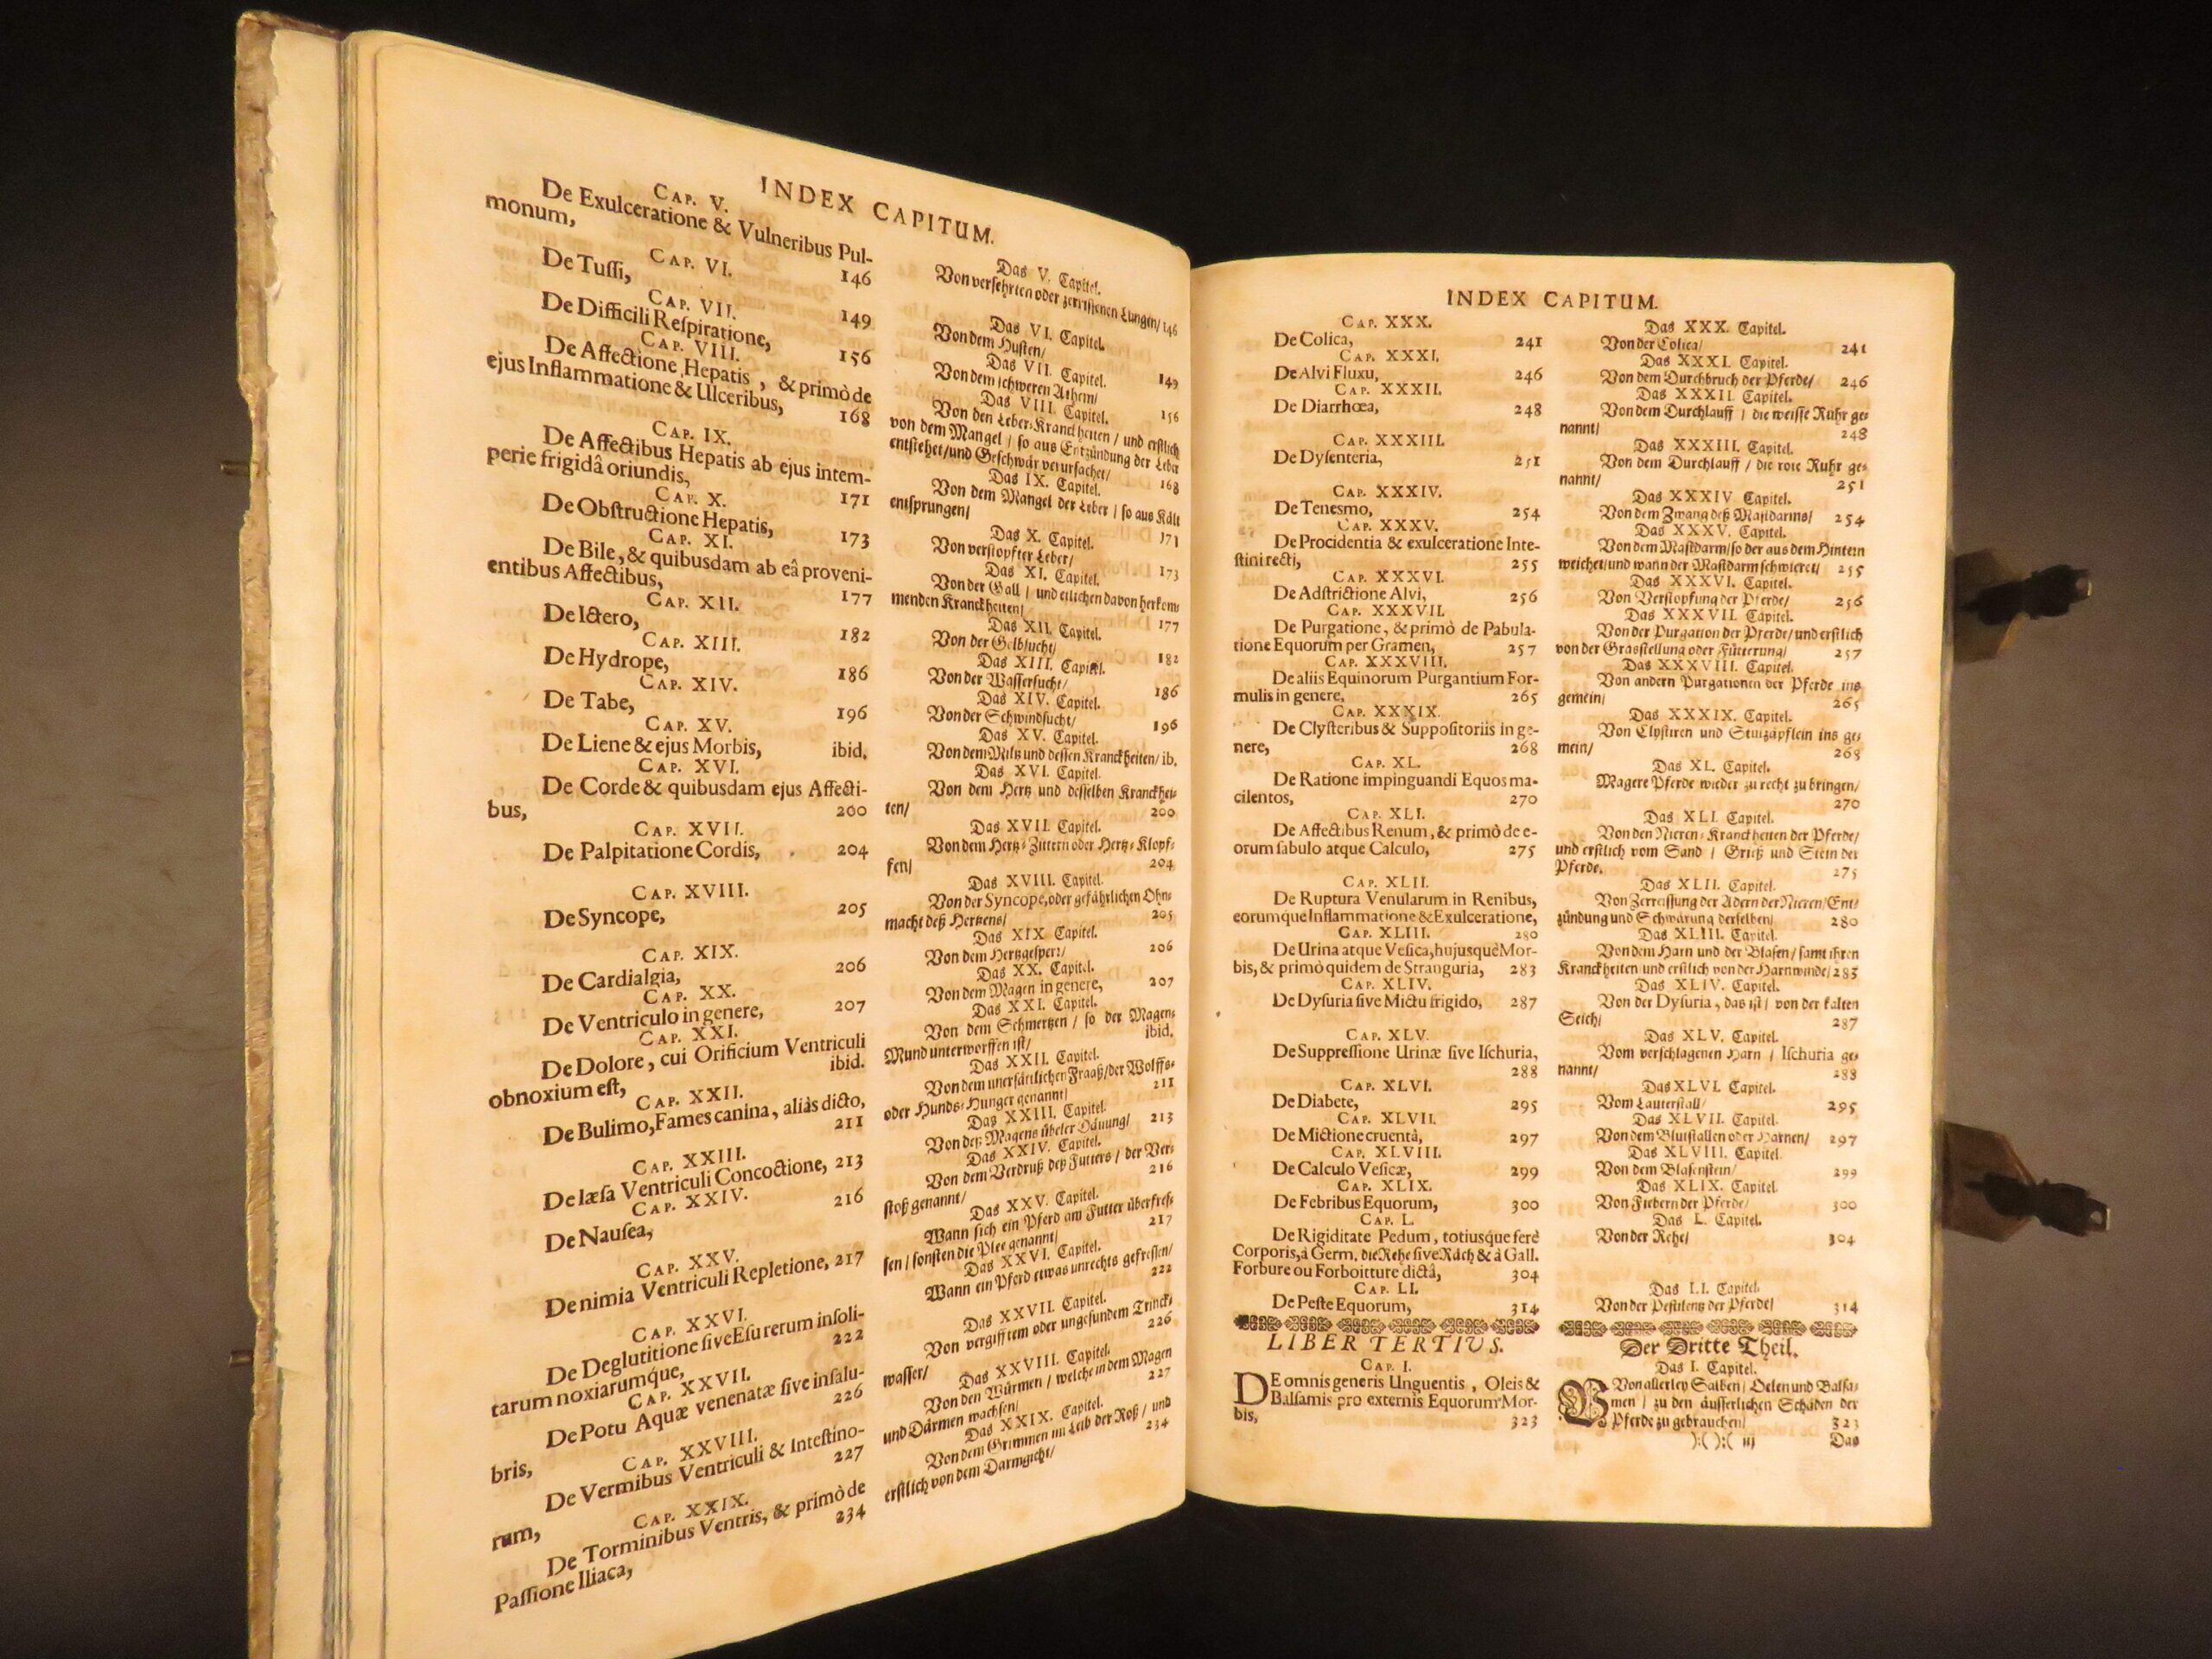 INDEX CAPITUM.
CAP. V.
De Exulceratione & Vulneribus Pul-
monum,
146
CAP. VI.
De Tuſſi,
149
CAP. VII.
De Difficili Reſpiratione,
156
CAP. VIII.
De Affectione Hepatis, & primò de
ejus Inflammatione & Ulceribus,
168
CAP. IX.
De Affectibus Hepatis ab ejus intem-
perie frigidâ oriundis,
171
CAP. X.
De Obſtructione Hepatis,
173
CAP. XI.
De Bile, & quibusdam ab eâ proveni-
entibus Affectibus,
177
CAP. XII.
De Ictero,
182
CAP. XIII.
De Hydrope,
186
CAP. XIV.
De Tabe,
196
CAP. XV.
De Liene & ejus Morbis, ibid.
CAP. XVI.
De Corde & quibusdam ejus Affecti-
bus, 200
CAP. XVII.
De Palpitatione Cordis, 204
CAP. XVIII.
De Syncope, 205
CAP. XIX.
De Cardialgia, 206
CAP. XX.
De Ventriculo in genere, 207
CAP. XXI.
De Dolore, cui Orificium Ventriculi
obnoxium eſt, ibid.
CAP. XXII.
De Bulimo, Fames canina, aliàs dicto,
211
CAP. XXIII.
De læſa Ventriculi Concoctione, 213
CAP. XXIV.
De Nauſea, 216
CAP. XXV.
De nimia Ventriculi Repletione, 217
CAP. XXVI.
De Deglutitione ſive Eſu rerum inſoli-
tarum noxiarumque, 222
CAP. XXVII.
De Potu Aquæ venenatæ ſive inſalu-
bris, 226
CAP. XXVIII.
De Vermibus Ventriculi & Inteſtino-
rum, 227
CAP. XXIX.
De Torminibus Ventris, & primò de
Paſſione Iliaca, 234
Das V. Capitel.
Von verſehrten oder zerriſſenen Lungen/ 146
Das VI. Capitel.
Von dem Huſten/
149
Das VII. Capitel.
Von dem ſchweren Athem/
156
Das VIII. Capitel.
Von den Leber-Kranckheiten / und erſtlich
von dem Mangel / ſo aus Entzündung der Leber
entſtehet/und Geſchwär verurſachet/
168
Das IX. Capitel.
Von dem Mangel der Leber / ſo aus Kält
entſprungen/
171
Das X. Capitel.
Von verſtopfter Leber/
173
Das XI. Capitel.
Von der Gall / und etlichen davon herkom-
menden Kranckheiten/
177
Das XII. Capitel.
Von der Gelbſucht/
182
Das XIII. Capitel.
Von der Waſſerſucht/
186
Das XIV. Capitel.
Von der Schwindſucht/
196
Das XV. Capitel.
Von dem Miltz und deſſen Kranckheiten/ ib.
Das XVI. Capitel.
Von dem Hertz und deſſelben Kranckhei-
ten/ 200
Das XVII. Capitel.
Von dem Hertz-Zittern oder Hertz-Klopf-
fen/ 204
Das XVIII. Capitel.
Von der Syncope, oder gefährlichen Ohn-
macht deß Hertzens/ 205
Das XIX Capitel.
Von dem Hertzgeſperr/ 206
Das XX. Capitel.
Von dem Magen in genere, 207
Das XXI. Capitel.
Von dem Schmertzen / ſo der Magen-
Mund unterworffen iſt/ ibid.
Das XXII. Capitel.
Von dem unerſättlichen Fraaß/der Wolffs-
oder Hunds-Hunger genannt/ 211
Das XXIII. Capitel.
Von deß Magens übeler Däuung/ 213
Das XXIV. Capitel.
Von dem Verdruß deß Futters / der Ver-
ſtoß genannt/ 216
Das XXV. Capitel.
Wann ſich ein Pferd am Futter überfreſ-
ſen / ſonſten die Plee genannt/ 217
Das XXVI. Capitel.
Wann ein Pferd etwas unrechts gefreſſen/
222
Das XXVII. Capitel.
Von vergifftem oder ungeſundem Trinck-
waſſer/ 226
Das XXVIII. Capitel.
Von den Würmen / welche in dem Magen
und Därmen wachſen/ 227
Das XXIX. Capitel.
Von dem Grimmen im Leib der Roß / und
erſtlich von dem Darmgicht/ 234
INDEX CAPITUM.
CAP. XXX.
De Colica, 241
CAP. XXXI.
De Alvi Fluxu, 246
CAP. XXXII.
De Diarrhœa, 248
CAP. XXXIII.
De Dyſenteria, 251
CAP. XXXIV.
De Tenesmo, 254
CAP. XXXV.
De Procidentia & exulceratione Inte-
ſtini recti, 255
CAP. XXXVI.
De Adſtrictione Alvi, 256
CAP. XXXVII.
De Purgatione, & primò de Pabula-
tione Equorum per Gramen, 257
CAP. XXXVIII.
De aliis Equinorum Purgantium For-
mulis in genere, 265
CAP. XXXIX.
De Clyſteribus & Suppoſitoriis in ge-
nere, 268
CAP. XL.
De Ratione impinguandi Equos ma-
cilentos, 270
CAP. XLI.
De Affectibus Renum, & primò de e-
orum ſabulo atque Calculo, 275
CAP. XLII.
De Ruptura Venularum in Renibus,
eorumque Inflammatione & Exulceratione,
280
CAP. XLIII.
De Urina atque Veſica, hujusquè Mor-
bis, & primò quidem de Stranguria, 283
CAP. XLIV.
De Dyſuria ſive Mictu frigido, 287
CAP. XLV.
De Suppreſſione Urinæ ſive Iſchuria,
288
CAP. XLVI.
De Diabete, 295
CAP. XLVII.
De Mictione cruentâ, 297
CAP. XLVIII.
De Calculo Veſicæ, 299
CAP. XLIX.
De Febribus Equorum, 300
CAP. L.
De Rigiditate Pedum, totiusque ferè
Corporis, à Germ. die Rehe ſive Räch & à Gall.
Forbure ou Forboitture dictâ, 304
CAP. LI.
De Peſte Equorum, 314
LIBER TERTIUS.
CAP. I.
DE omnis generis Unguentis, Oleis &
Balſamis pro externis Equorum Mor-
bis, 323
Das XXX. Capitel.
Von der Colica/ 241
Das XXXI. Capitel.
Von dem Durchbruch der Pferde/ 246
Das XXXII. Capitel.
Von dem Durchlauff / die weiſſe Ruhr ge-
nannt/ 248
Das XXXIII. Capitel.
Von dem Durchlauff / die rote Ruhr ge-
nannt/ 251
Das XXXIV Capitel.
Von dem Zwang deß Maſtdarms/ 254
Das XXXV. Capitel.
Von dem Maſtdarm/ſo der aus dem Hintern
weichet/und wann der Maſtdarm ſchwieret/ 255
Das XXXVI. Capitel.
Von Verſtopfung der Pferde/ 256
Das XXXVII. Capitel.
Von der Purgation der Pferde/und erſtlich
von der Grasſtellung oder Fütterung/ 257
Das XXXVIII. Capitel.
Von andern Purgationen der Pferde ins
gemein/ 265
Das XXXIX. Capitel.
Von Clyſtiren und Stulzäpflein ins ge-
mein/ 268
Das XL. Capitel.
Magere Pferde wieder zu recht zu bringen/
270
Das XLI. Capitel.
Von den Nieren-Kranckheiten der Pferde/
und erſtlich vom Sand / Grieß und Stein der
Pferde. 275
Das XLII. Capitel.
Von Zerreiſſung der Adern der Nieren/Ent-
zündung und Schwärung derſelben/ 280
Das XLIII. Capitel.
Von dem Harn und der Blaſen / ſamt ihren
Kranckheiten und erſtlich von der Harnwinde/ 283
Das XLIV. Capitel.
Von der Dyſuria, das iſt/ von der kalten
Seich/ 287
Das XLV. Capitel.
Vom verſchlagenen Harn / Iſchuria ge-
nannt/ 288
Das XLVI. Capitel.
Vom Lauterſtall/ 295
Das XLVII. Capitel.
Von dem Blutſtallen oder Harnen/ 297
Das XLVIII. Capitel.
Von dem Blaſenſtein/ 299
Das XLIX. Capitel.
Von Fiebern der Pferde/ 300
Das L. Capitel.
Von der Rehe/ 304
Das LI. Capitel.
Von der Peſtilentz der Pferde/ 314
Der Dritte Theil.
Das I. Capitel.
Von allerley Salben/ Oelen und Balſa-
men / zu den äuſſerlichen Schäden der
Pferde zu gebrauchen/ 323
):( ):( iij Das